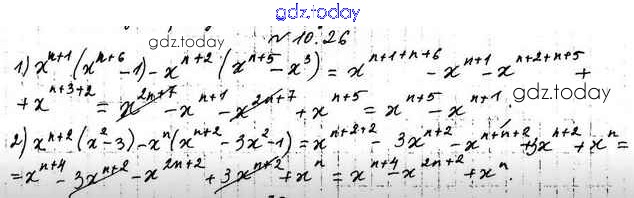 gdz.today
№ 10.26
gdz.today
1) xⁿ⁺¹(xⁿ⁺⁶ - 1) - xⁿ⁺²(xⁿ⁺⁵ - x³) = xⁿ⁺¹⁺ⁿ⁺⁶ - xⁿ⁺¹ - xⁿ⁺²⁺ⁿ⁺⁵ +
gdz.today
+ xⁿ⁺³⁺² = x²ⁿ⁺⁷ - xⁿ⁺¹ - x²ⁿ⁺⁷ + xⁿ⁺⁵ = xⁿ⁺⁵ - xⁿ⁺¹.
2) xⁿ⁺²(x² - 3) - xⁿ(xⁿ⁺² - 3x² - 1) = xⁿ⁺²⁺² - 3xⁿ⁺² - xⁿ⁺ⁿ⁺² + 3xⁿ⁺² + xⁿ =
= xⁿ⁺⁴ - 3xⁿ⁺² - x²ⁿ⁺² + 3xⁿ⁺² + xⁿ = xⁿ⁺⁴ - x²ⁿ⁺² + xⁿ.